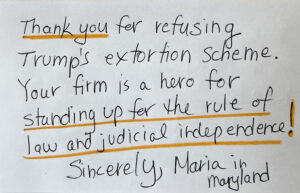 Thank you fer refusing
Trump's extortion scheme.
Your firm is a hero for
standing up fer the rule of
law and judicial independence!
Sincerely, Maria in
maryland